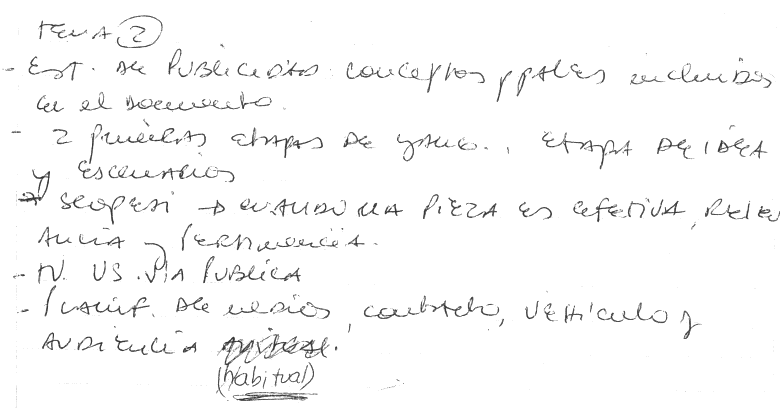 TEMA 2
- EST. DE PUBLICIDAD conceptos ppales incluidos
en el Documento.
- 2 primeras etapas de , ETAPA DE IDEA
y ESCENARIOS
CUANDO UNA PIEZA es efectiva, RELEV
ANCIA y PERTINENCIA.
- TV. VS. VIA PUBLICA
- PLANIF. DE MEDIOS, contacto, VEHICULO y
AUDIENCIA
(habitual)